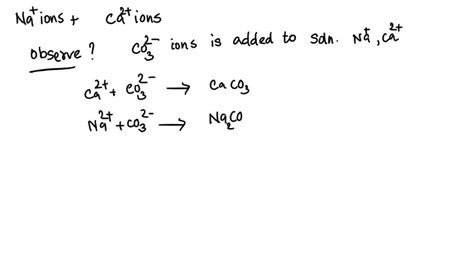 Na⁺ ions + Ca²⁺ ions
observe ? CO₃²⁻ ions is added to soln. Na⁺, Ca²⁺
Ca²⁺ + CO₃²⁻ → CaCO₃
Na²⁺ + CO₃²⁻ → Na₂CO